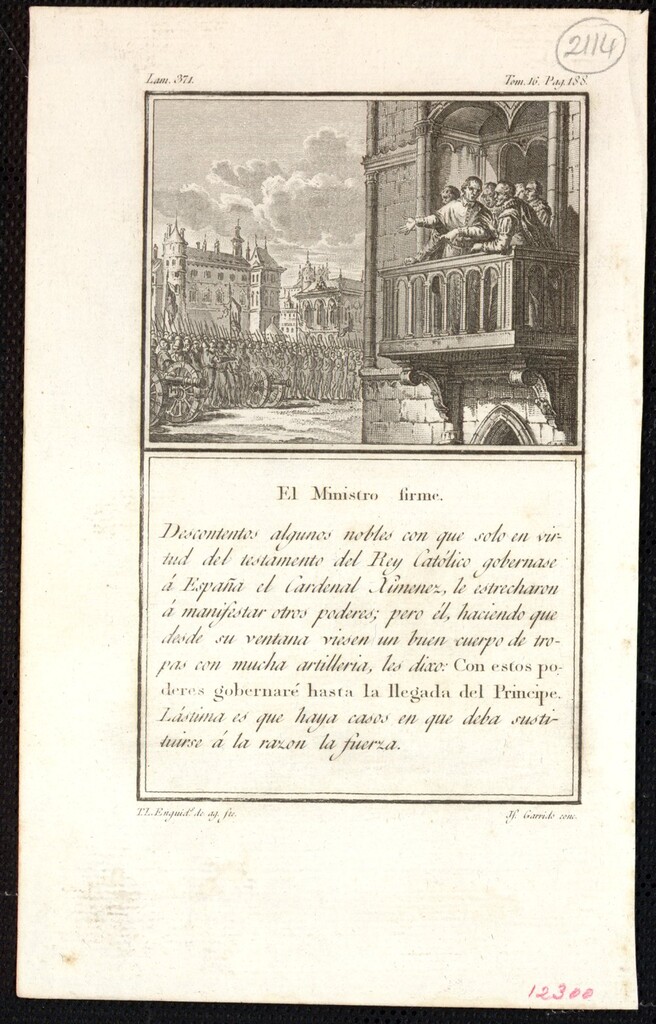 2114
Lam. 371.
Tom. 16. Pag. 188.
El Ministro firme.
Descontentos algunos nobles con que solo en vir-
tud del testamento del Rey Católico gobernase
á España el Cardenal Ximenez, le estrecharon
á manifestar otros poderes; pero él, haciendo que
desde su ventana viesen un buen cuerpo de tro-
pas con mucha artilleria, les dixo: Con estos po-
deres gobernaré hasta la llegada del Principe.
Lástima es que haya casos en que deba susti-
tuirse á la razon la fuerza.
T. L. Enguid.ˢ de ag. fu.
Jf. Garrido conc.
12300